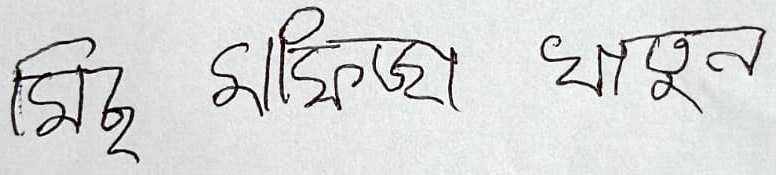 মিছ মাফিজা খাতুন